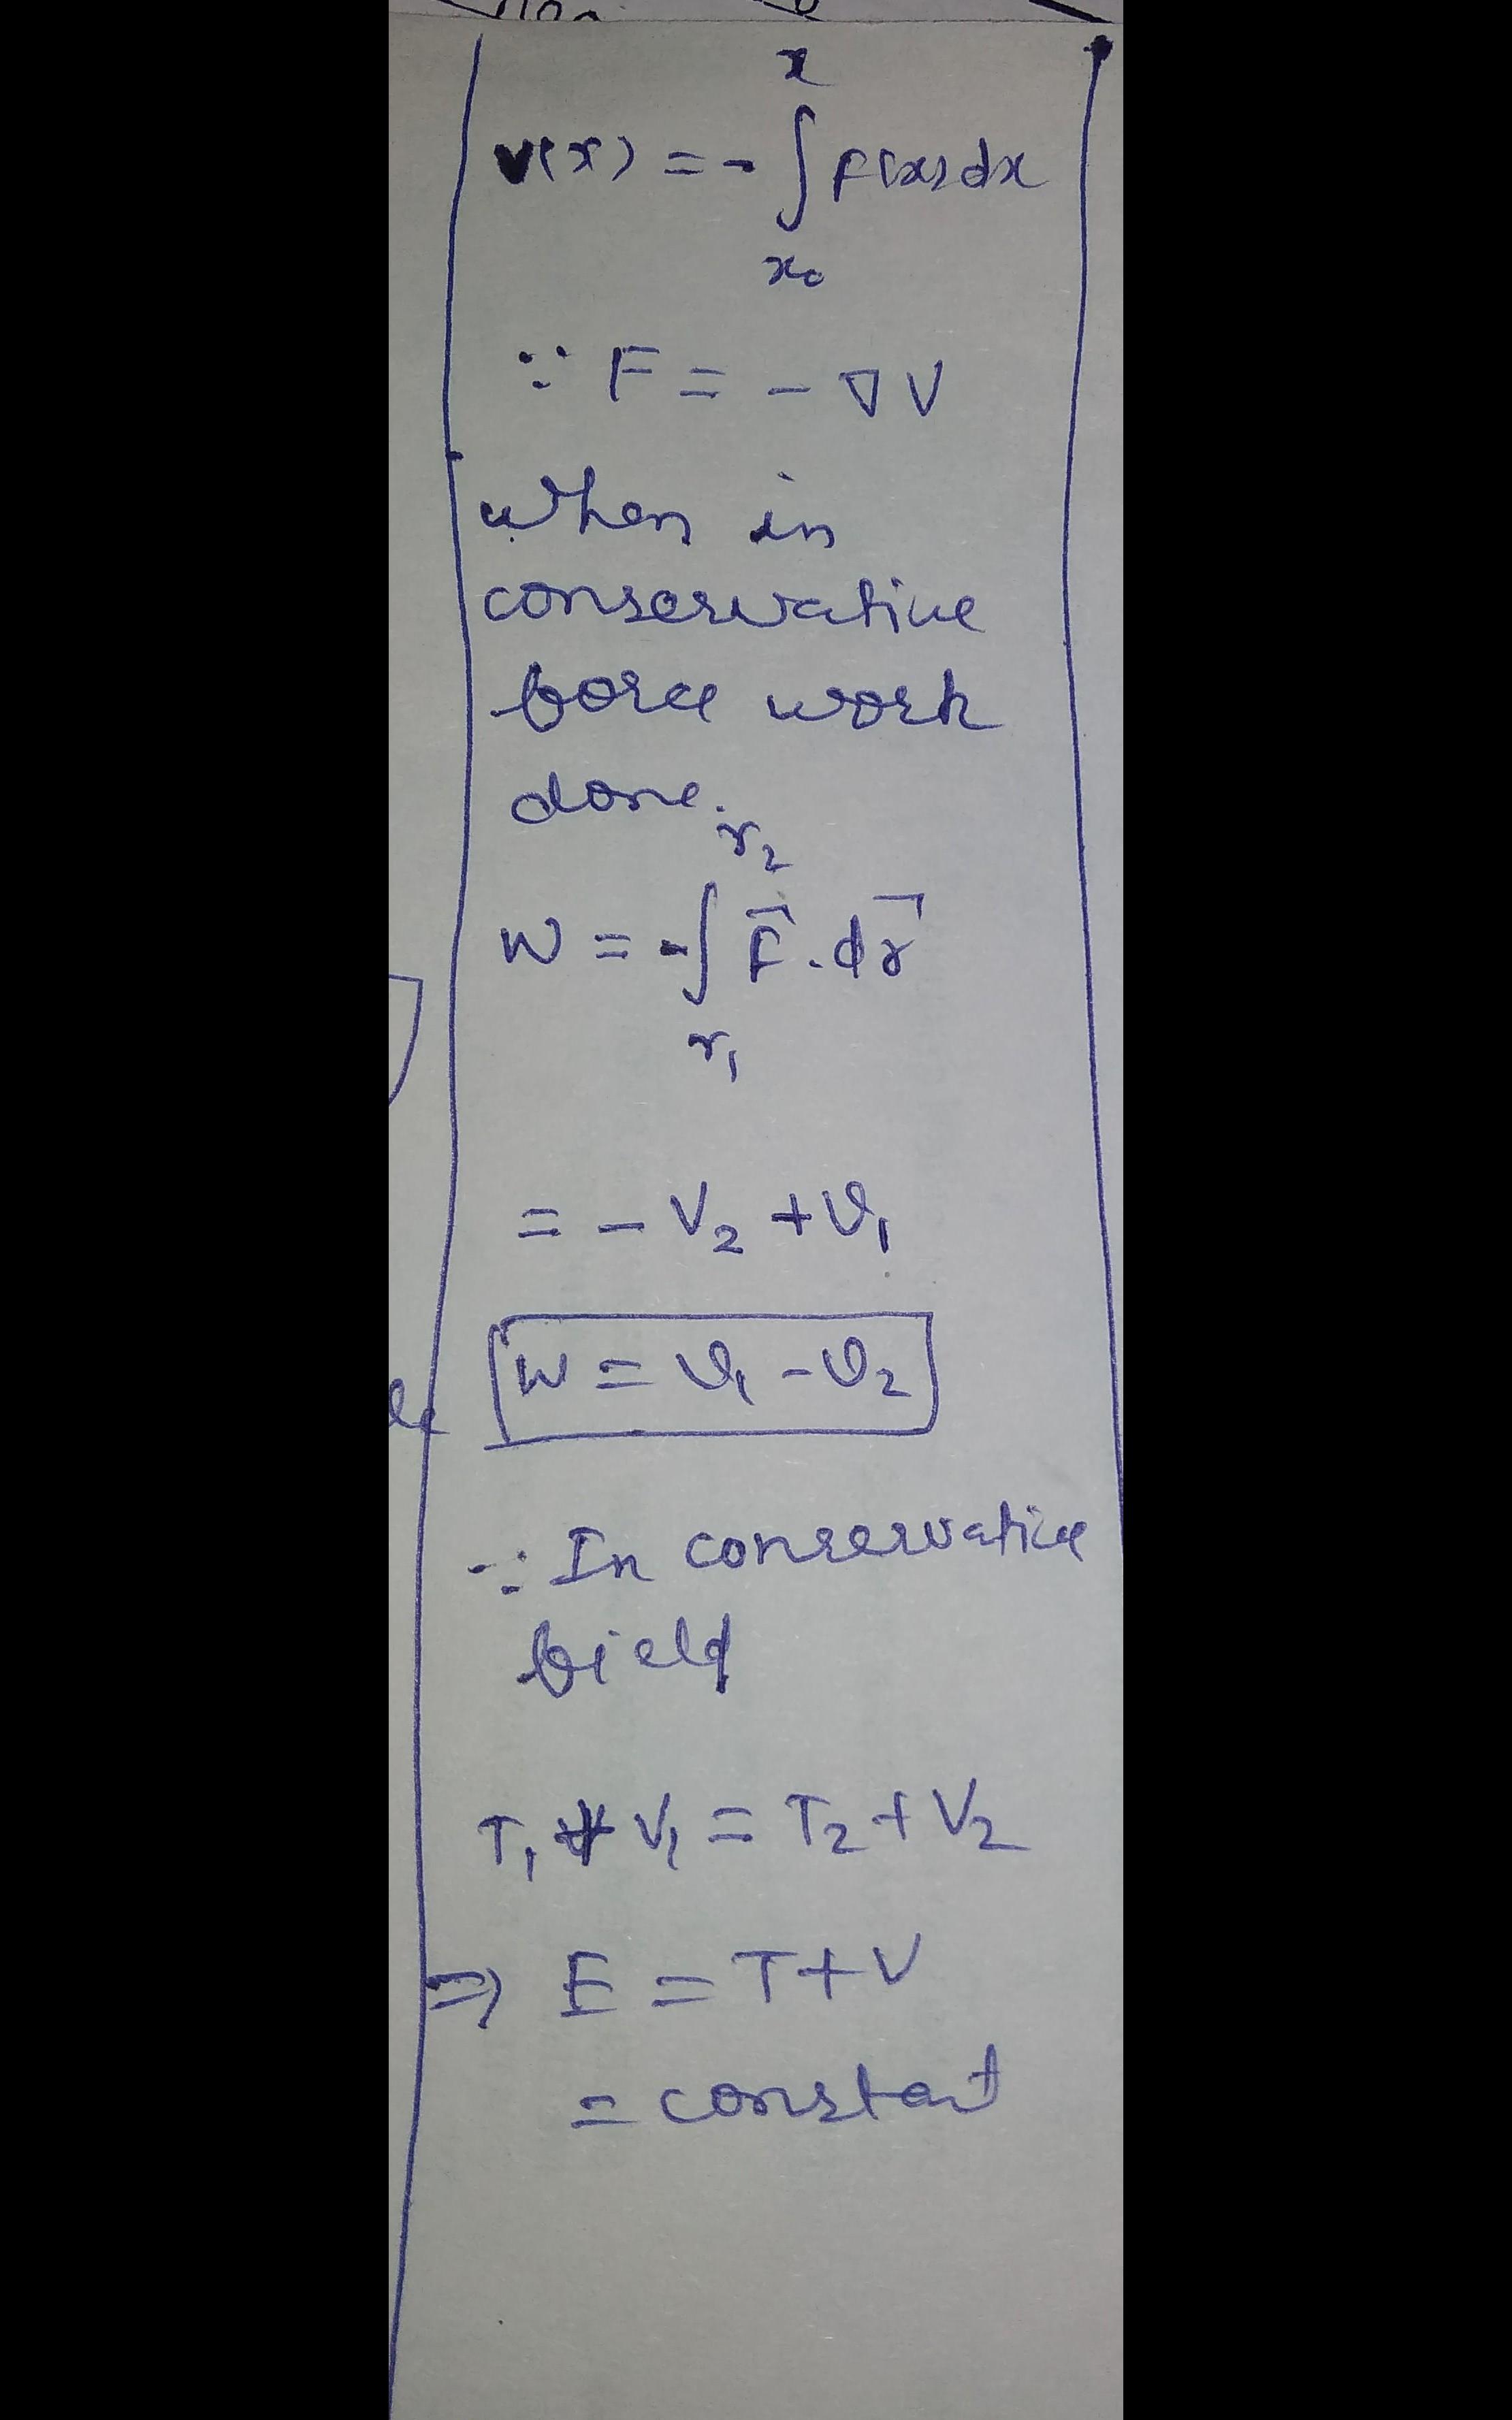 V(x) = - ∫ F(x) dx
x
x₀
∵ F = - ∇V
when in
conservative
force work
done.
W = -∫ F⃗ . dr⃗
r₂
r₁
= - V₂ + V₁
W = V₁ - V₂
∵ In conservative
field
T₁ + V₁ = T₂ + V₂
⇒ E = T + V
= constant